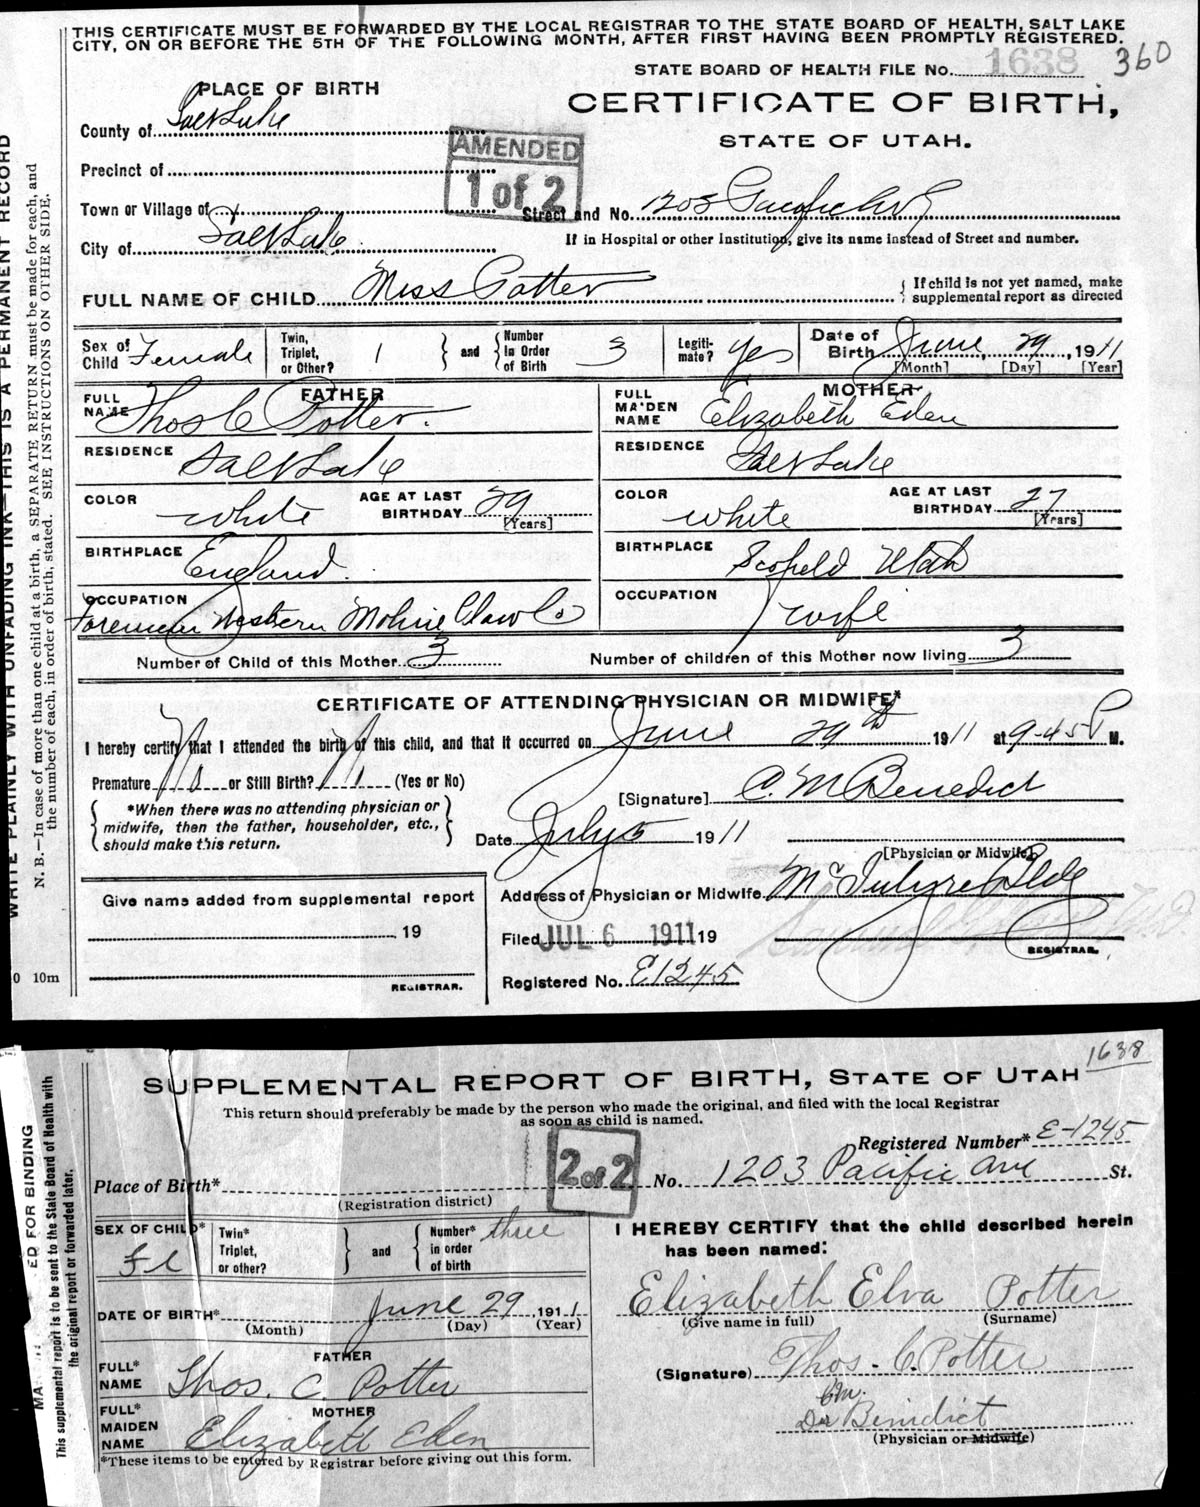 THIS CERTIFICATE MUST BE FORWARDED BY THE LOCAL REGISTRAR TO THE STATE BOARD OF HEALTH, SALT LAKE
CITY, ON OR BEFORE THE 5TH OF THE FOLLOWING MONTH, AFTER FIRST HAVING BEEN PROMPTLY REGISTERED.
STATE BOARD OF HEALTH FILE No. 1638 360
PLACE OF BIRTH
CERTIFICATE OF BIRTH,
STATE OF UTAH.
County of Salt Lake
AMENDED
1 of 2
Precinct of
Town or Village of
Street and No. 1203 Pacific Av
City of Salt Lake
If in Hospital or other Institution, give its name instead of Street and number.
FULL NAME OF CHILD Miss Potter
{ If child is not yet named, make
supplemental report as directed
Sex of Child Female
Twin, Triplet, or Other? 1 } and { Number in Order of Birth 3
Legitimate? Yes
Date of Birth June 29, 1911
[Month] [Day] [Year]
FATHER
FULL NAME Thos C Potter.
RESIDENCE Salt Lake
COLOR white AGE AT LAST BIRTHDAY 29 [Years]
BIRTHPLACE England.
OCCUPATION Foreman Western Co
MOTHER
FULL MAIDEN NAME Elizabeth Eden
RESIDENCE Salt Lake
COLOR white AGE AT LAST BIRTHDAY 27 [Years]
BIRTHPLACE Scofield Utah
OCCUPATION wife
Number of Child of this Mother 3 Number of children of this Mother now living 3
CERTIFICATE OF ATTENDING PHYSICIAN OR MIDWIFE*
I hereby certify that I attended the birth of this child, and that it occurred on June 29th 1911 at 9-45 P M.
Premature No or Still Birth? No (Yes or No)
{ *When there was no attending physician or
midwife, then the father, householder, etc.,
should make this return. }
[Signature] C. M Benedict
Date July 5 1911
[Physician or Midwife]
Address of Physician or Midwife McIntyre Bldg
Give name added from supplemental report
19
REGISTRAR.
Filed JUL 6 1911 19
REGISTRAR.
Registered No. E1245
WRITE PLAINLY WITH UNFADING INK—THIS IS A PERMANENT RECORD
N. B.—In case of more than one child at a birth, a SEPARATE RETURN must be made for each, and
the number of each, in order of birth, stated. SEE INSTRUCTIONS ON OTHER SIDE.
0 10m
1638
SUPPLEMENTAL REPORT OF BIRTH, STATE OF UTAH
This return should preferably be made by the person who made the original, and filed with the local Registrar
as soon as child is named.
2 of 2
Registered Number* E-1245
Place of Birth*
(Registration district)
No. 1203 Pacific Ave St.
SEX OF CHILD* Fl
Twin* Triplet, or other? } and { Number* in order of birth three
I HEREBY CERTIFY that the child described herein
has been named:
Elizabeth Elva Potter
(Give name in full) (Surname)
DATE OF BIRTH* June 29, 1911
(Month) (Day) (Year)
FATHER
FULL* NAME Thos. C. Potter
(Signature) Thos. C. Potter
MOTHER
FULL* MAIDEN NAME Elizabeth Eden
CM.
Dr Benidict
(Physician or Midwife)
*These items to be entered by Registrar before giving out this form.
ED FOR BINDING
This supplemental report is to be sent to the State Board of Health with
the original report or forwarded later.